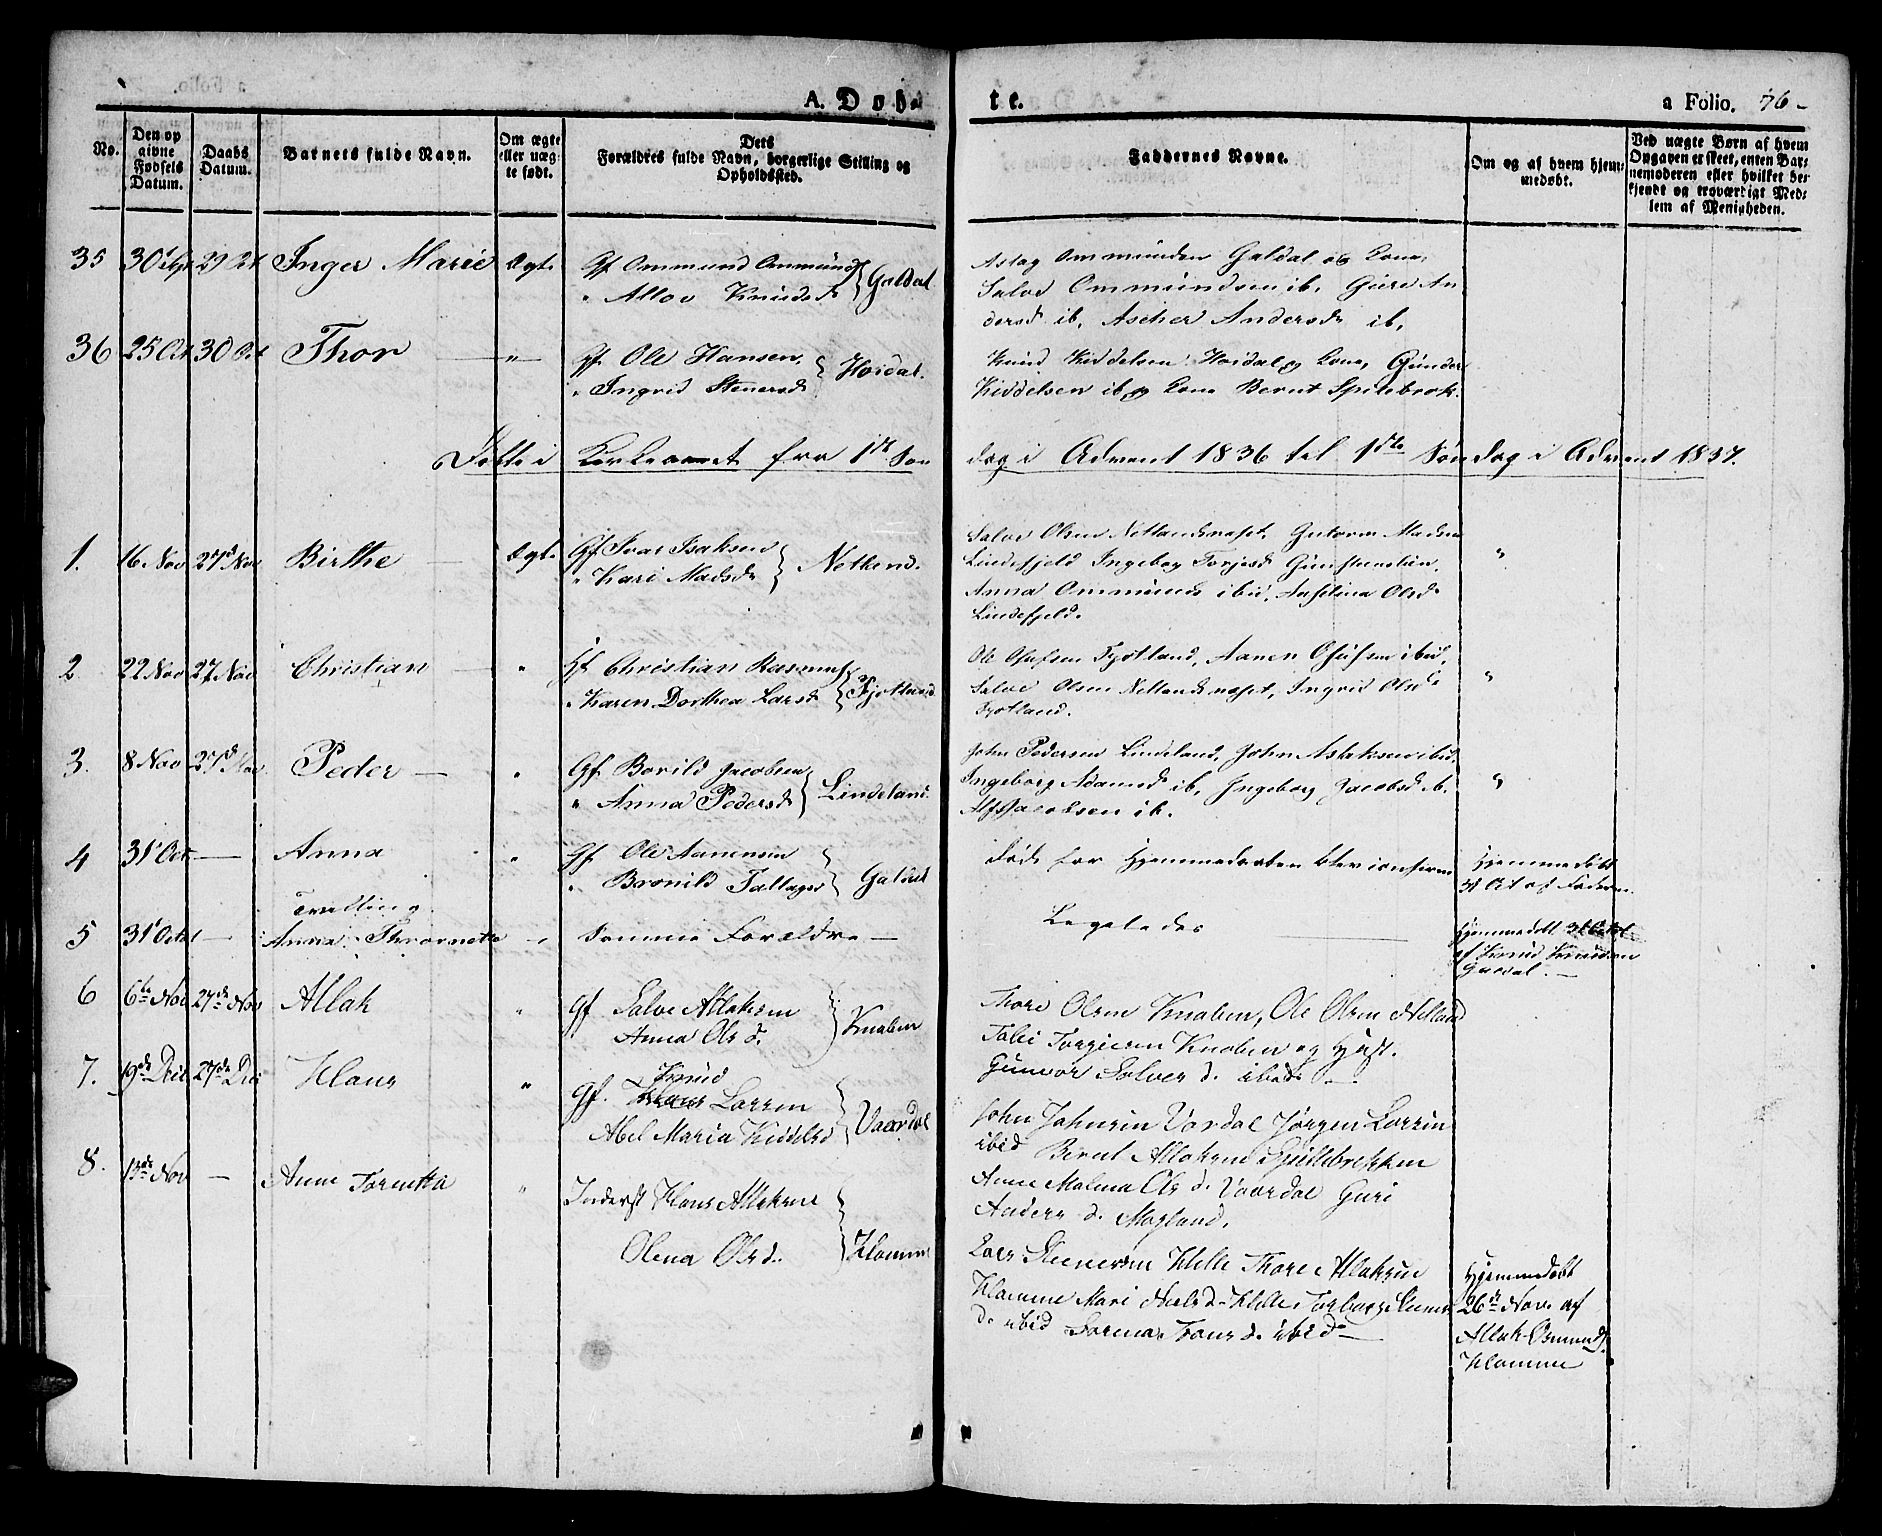 A. Døb- te. a Folio. 76-
No. Den op givne Fødsels Datum. Daabs Datum. Barnets fulde Navn. Om ægte eller uægte født. Dets Forældres fulde Navn, borgerlige Stilling og Opholdssted. Faddernes Navne. Om og af hvem hjemmedøbt. Ved uægte Børn af hvem Opgaven er skeet, enten Barnemoderen eller hvilket bekjendt og troværdigt Medlem af Menigheden.
35 30 Sept 29 Oct Inger Marie Ægt. Gf Ommund Ommunds
" Knudsd Galdal
Aslag Ommundsen Galdal og Kone,
Salve Ommundsen ib, Guri An
dersd ib, Ascher Andersd ib,
36 25 Oct 30 Oct Thor — " — Gf. Ole Hansen,
" Ingrid Stenersd Høidal.
Knud Kiddelsen Høidal og Kone, Gunder
Kiddelsen ib og Kone Bernt Spilebrok.
Døbte i Kirkeaaret fra 1ste Søndag i Advent 1836 til 1ste Søndag i Advent 1837.
1. 16 Nov 27d Nov Birthe — Ægt. Gf Ivar Isaksen
" Kari Madsd Netland.
Salve Olsen Netlandsnæset, Gutorm Madsen
Lindefjeld Ingeborg Torjesd
Anna Ommunds ibid, Olsd
Lindefjeld.
"
2 22 Nov 27 Nov Christian — " Hf Christian Rasmus
" Karen Dorthea Larsd Fjotland
Ole Fjotland, Aanen ibid,
Salve Olsen Netlandsnæset, Ingrid Olsd
Fjotland.
"
3. 8 Nov 27d Nov Peder — " Gf. Bovild Jacobsen
" Anna Pedersd Lindeland.
John Pedersen Lindeland, John Aslaksen ibid.
Ingeborg Adamsd ib, Ingeborg Jacobsd ib.
Alf Jacobsen ib.
"
4 31 Oct — Anna " Gf. Ole Aanensen
" Bronild Tallagsd Galdal
Døde før Hjemmedaaben blev confirm
Hjemmedøbt
31 Oct af Faderen.
Tvilling
5 31 Oct — Anna Thronette — " Samme Forældre —
Ligeledes —
Hjemmedøbt 31 Octbr
af Knud Knudsen
Galdal. —
6 6te Nov 27de Nov Allak " Gf Salve Allaksen
Anna Olsd. Knaben
Thore Olsen Knaben, Ole Olsen Netland
Tolei Torgiersen Knaben og Hust.
Gunvor Salvesd. ibid —
7. 19de Dec 27de Dec Klaus " Gf. Knud Larsen
Abel Maria Kiddelsd Vaardal
John Johnsen Vordal Jørgen Larsen
ibid Bernt Allaksen Spillebrekken
Anne Malena Olsd. Vaardal Guri
Andersd. Mygland.
8. 13de Nov — Anne Torentha " Inderst Klaus Allaksen
Olena Olsd. Klomme
Lars Steenersen Helle Thore Allaksen
Klomme Mari Nielsd. Helle Torborg Steeners
d. ibid Sorina Tonsd. ibid —
Hjemmedøbt
26de Nov. af
Allak Osmunds.
Klomme